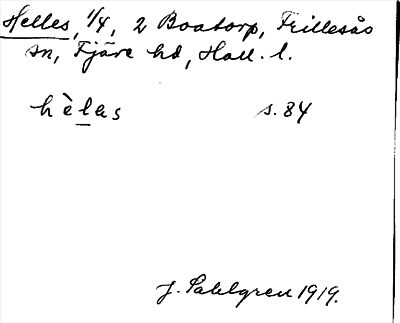 Helles, 1/4, 2 Boatorp, Frillesås
sn, Fjäre hd, Hall. l.
hèlas s. 84
J. Sahlgren 1919.